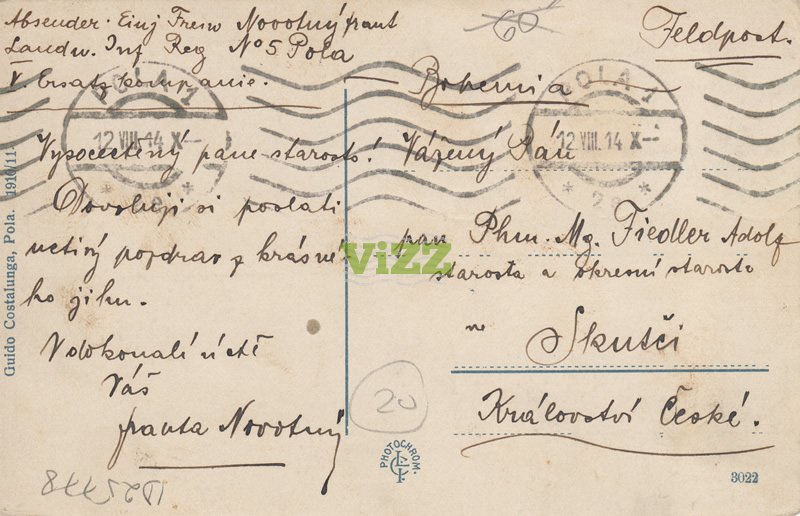 Absender: Einj Freiw Novotný frant
Landw. Inf Reg Nº 5 Pola
V. Ersatz Companie.
60
Feldpost.
Bohemia
POLA 1
12.VIII.14 X--
* 2a *
POLA 1
12.VIII.14 X--
* 2a *
Vysocectěný pane starosto!
Dovoluji si poslati
uctivý pozdrav z krásné-
ho jihu.
V dokonalé úctě
Váš
franta Novotný
Vážený Pán
pan Phm. Mg. Fiedler Adolf
starosta a okresní starosta
ve
Skutči
Království České.
ViZZ
20
Guido Costalunga, Pola. 1910/11
PHOTOCHROM.
3022